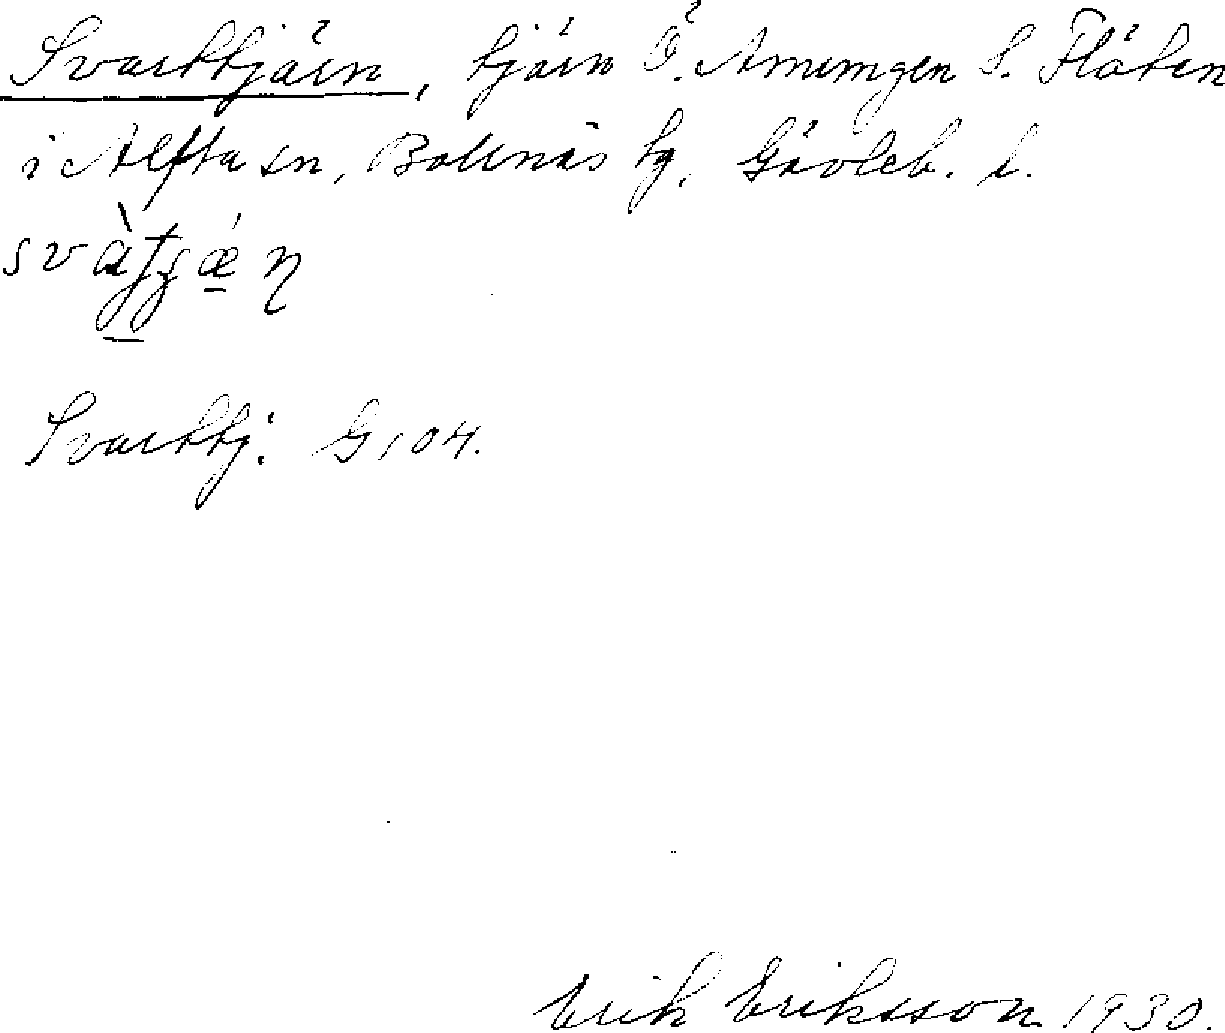 Svarttjärn, tjärn Ö. Amungen S. Flåten
i Alfta sn, Bollnäs tg, Gävleb. l.
Svarttj: G 104.
Erik Eriksson 1930.